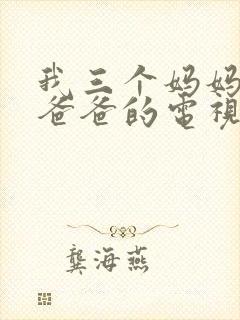 我三个妈妈
爸爸的電視
龔海燕